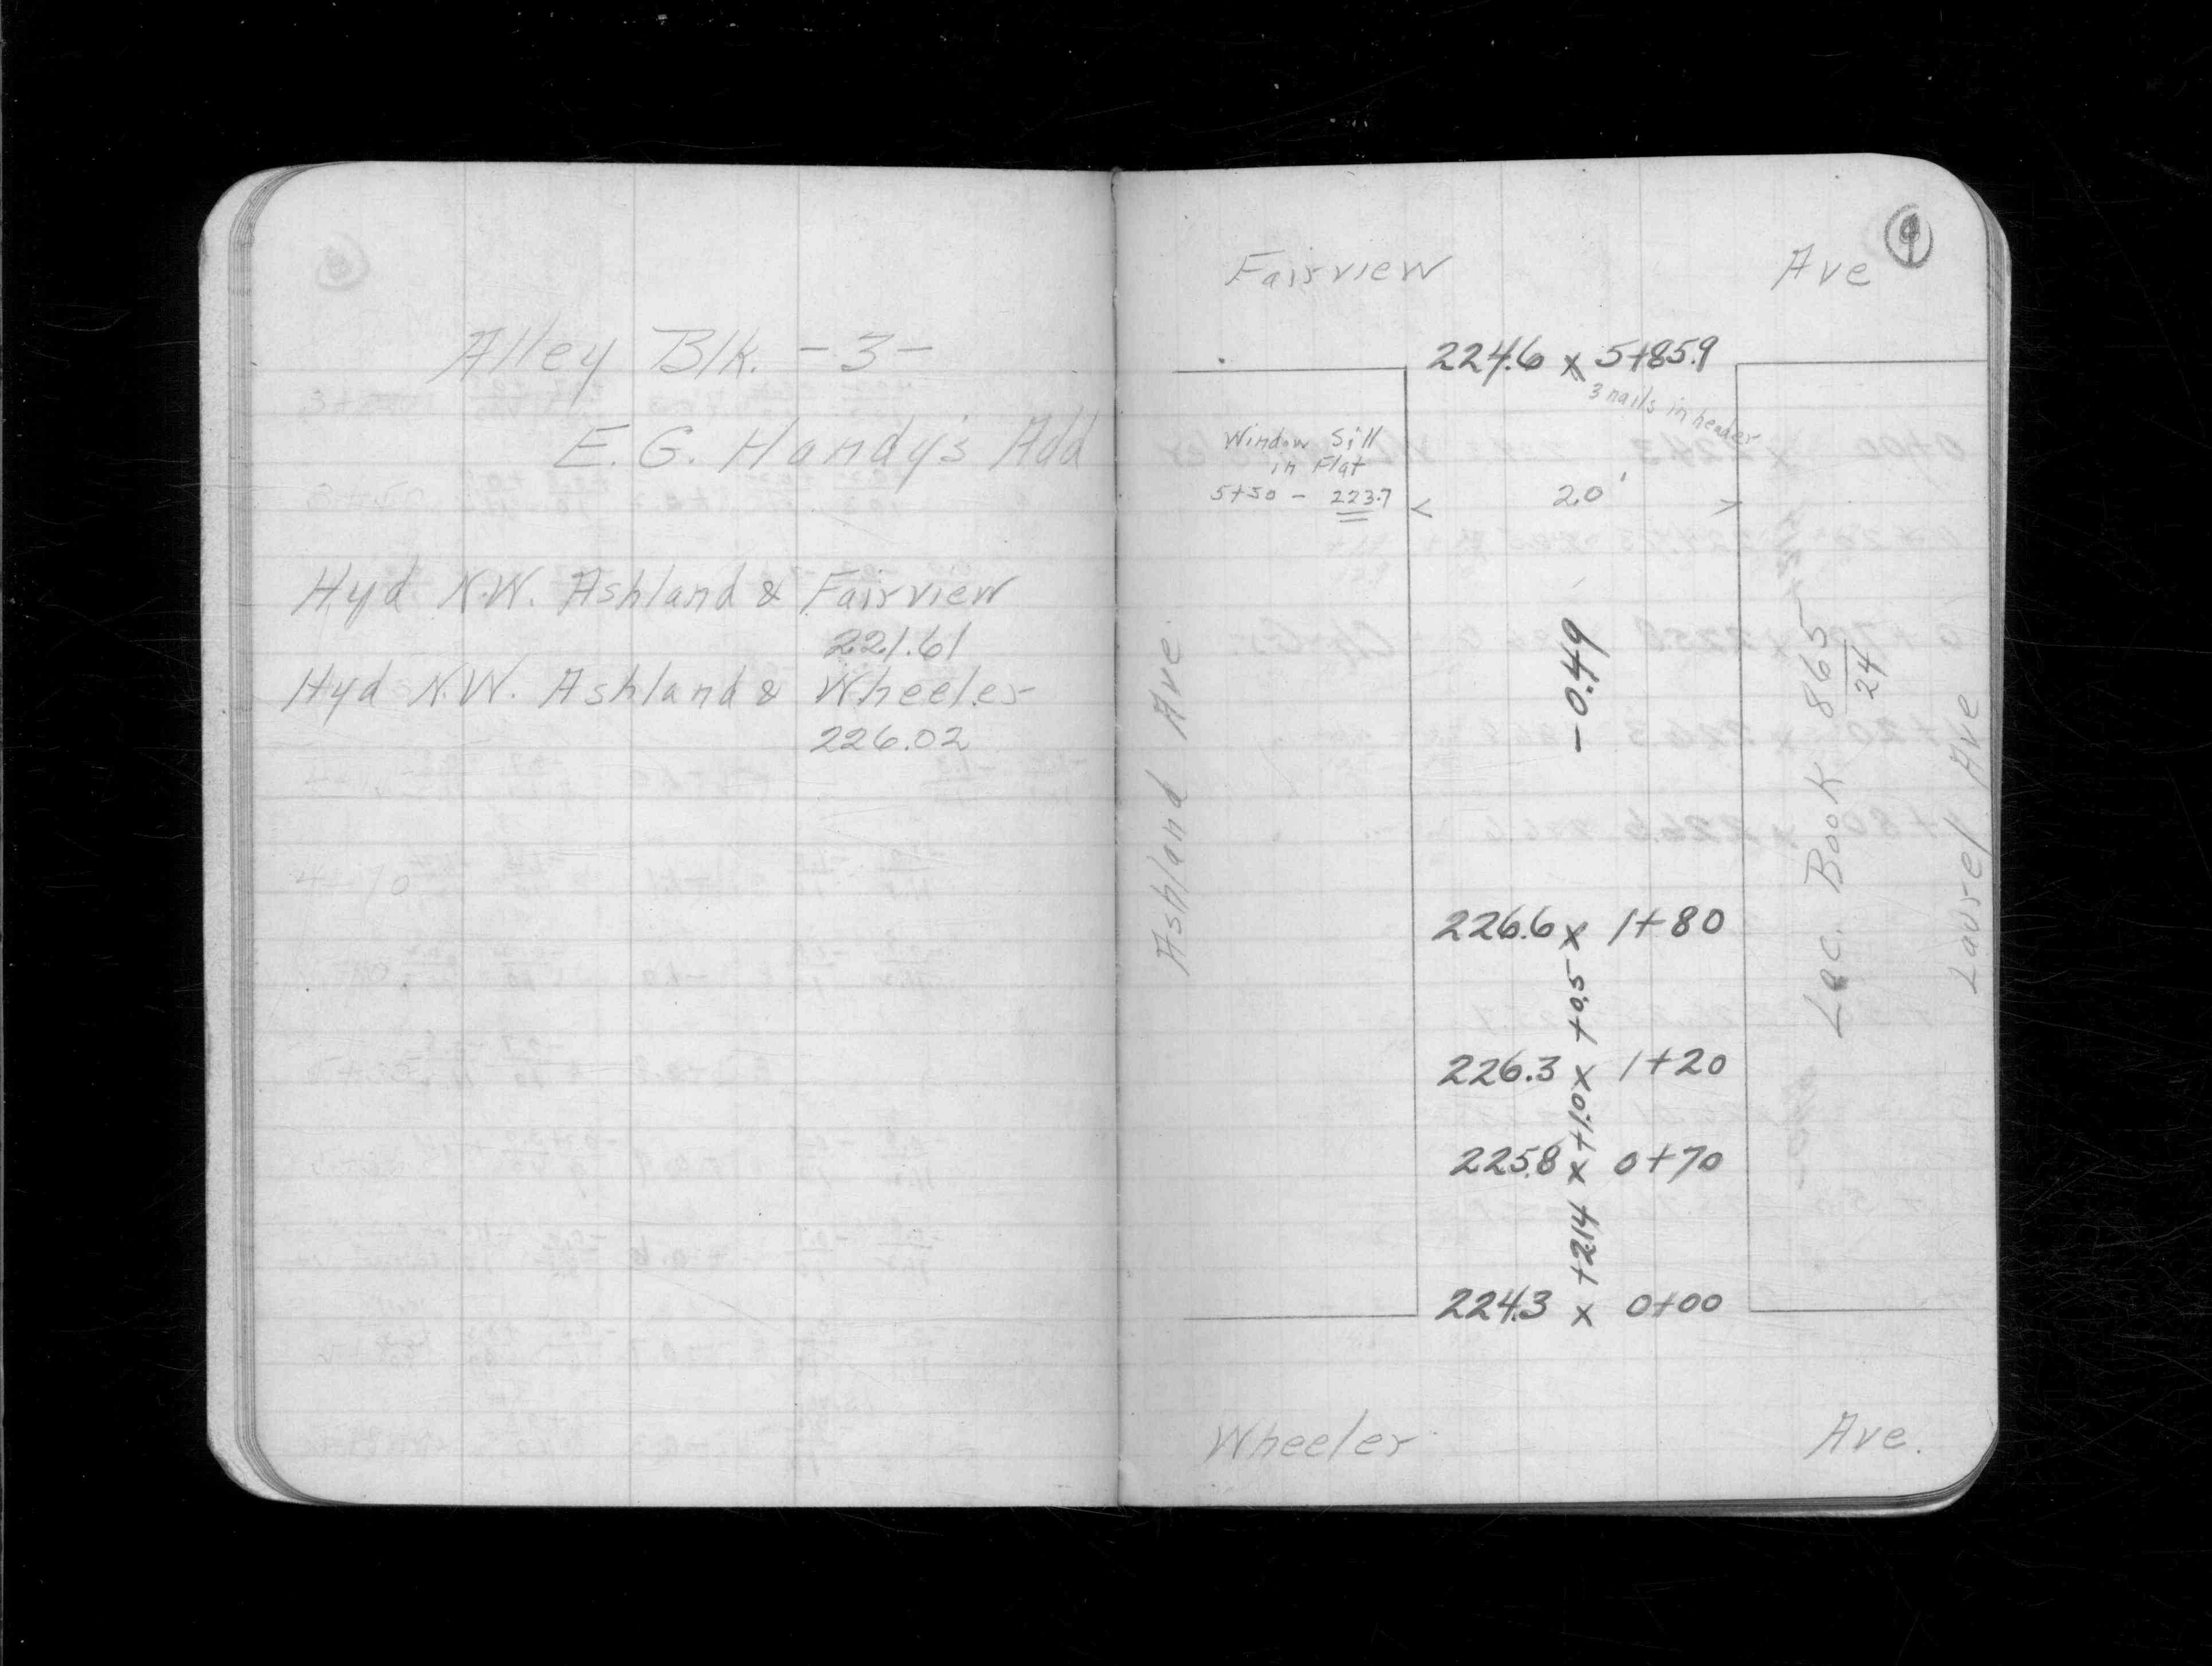 Alley Blk. -3-
E. G. Handy's Add
Hyd N.W. Ashland & Fairview
221.61
Hyd N.W. Ashland & Wheeler
226.02
9
Fairview Ave
224.6 x 5+85.9
3 nails in header
Window Sill
in Flat
5+50 - 223.7
< 20' >
- 0.49
Ashland Ave.
Loc. Book 865
24
Laurel Ave
226.6 x 1+80
+0.5
226.3 x 1+20
+1.0
225.8 x 0+70
+2.14
224.3 x 0+00
Wheeler Ave.